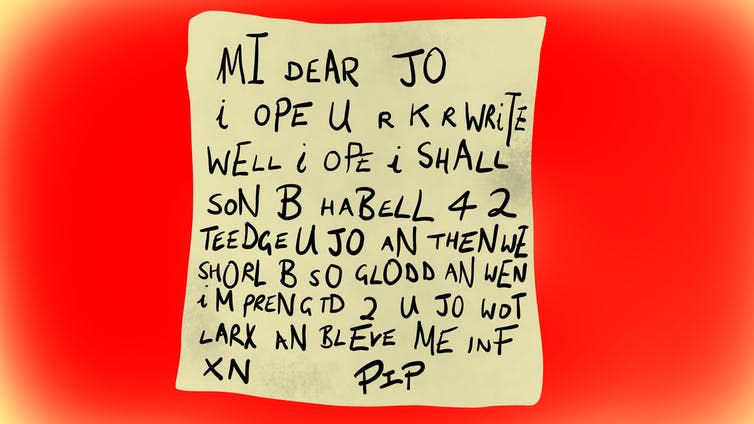 MI DEAR JO
i OPE U R K R WRiTE
WELL i OPE i SHALL
SON B HABELL 4 2
TEEDGE U JO AN THEN WE
SHORL B SO GLODD AN WEN
iM PRENGTD 2 U JO WOT
LARX AN BLEVE ME INF
XN PIP